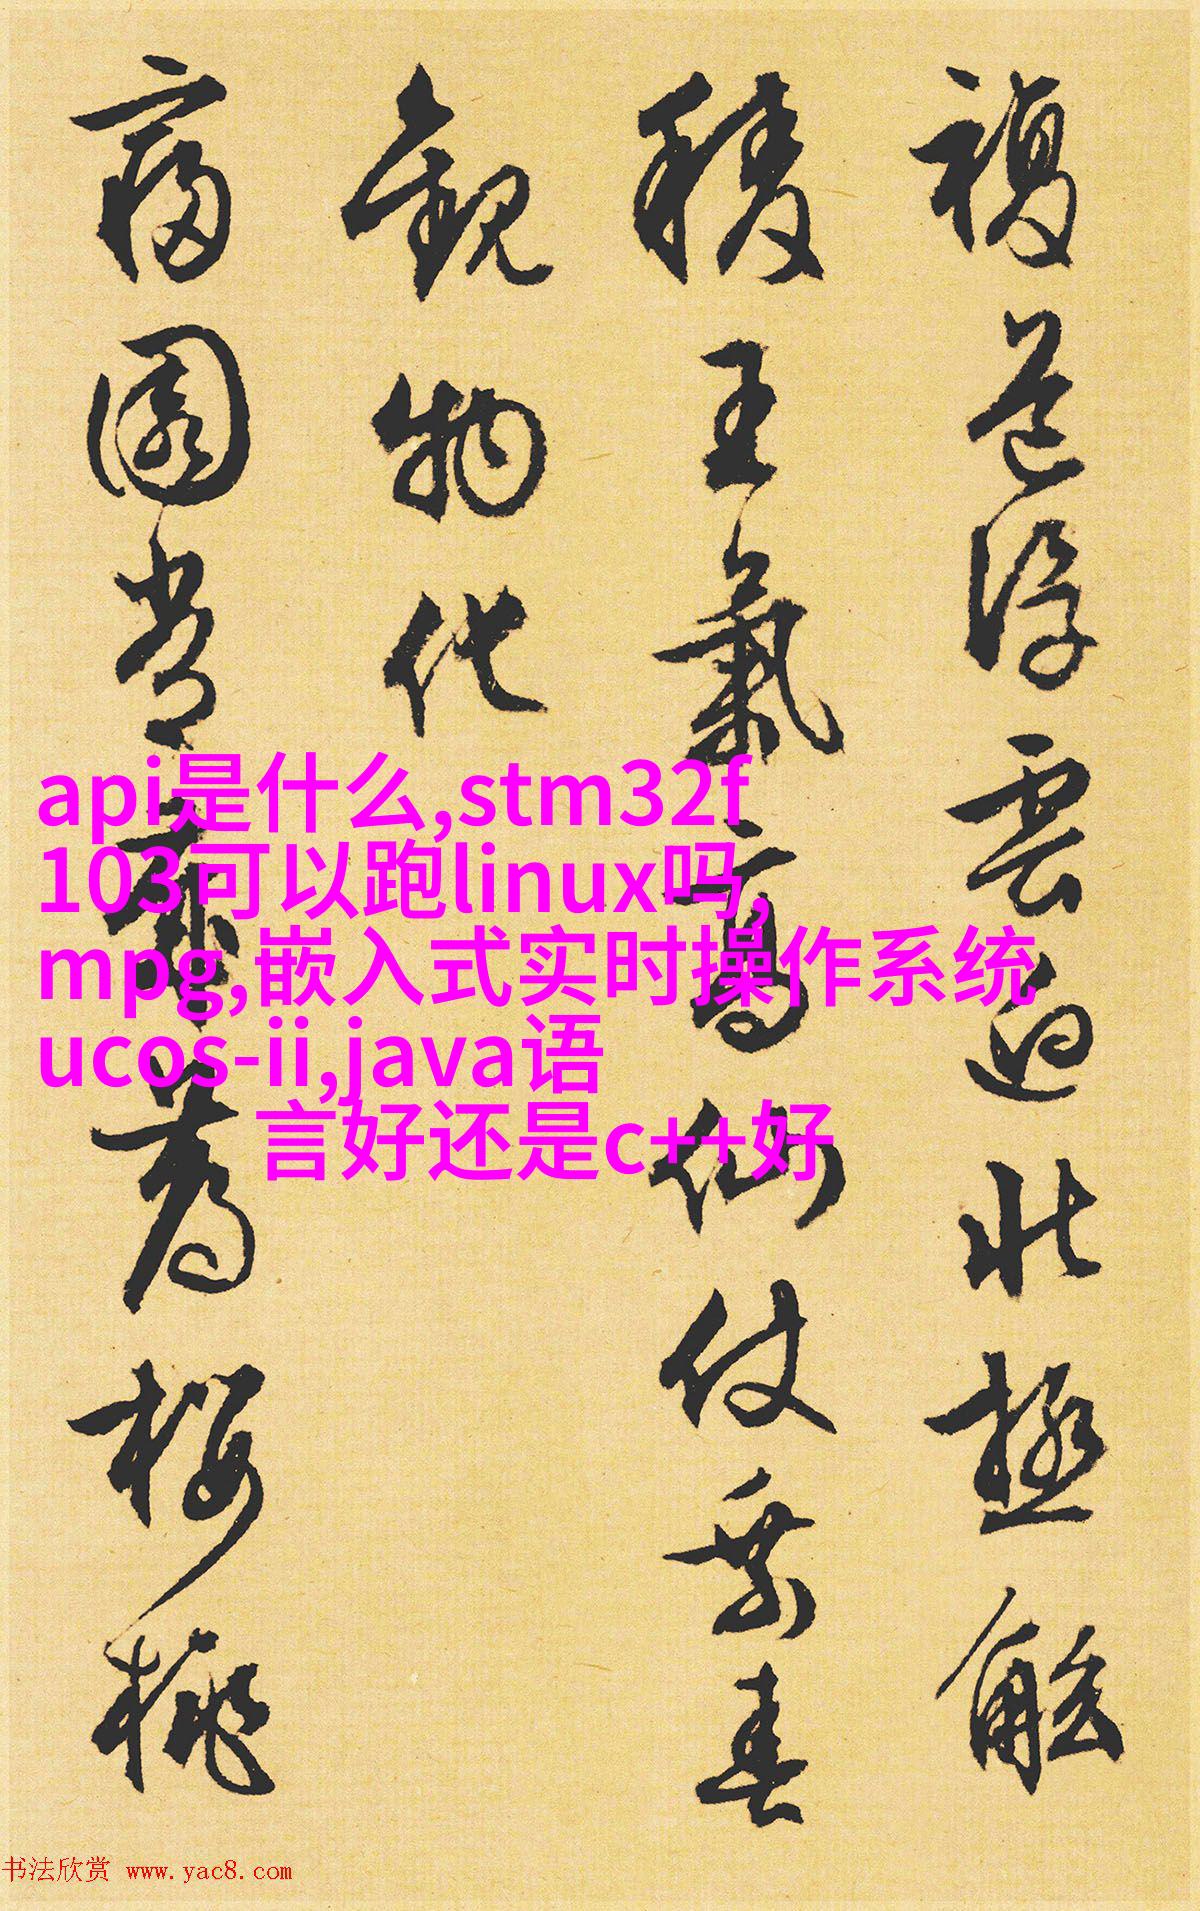 複道浮雲迎北極觚
稜王氣高仙仗乘春
觀物化
齋園嘗薦櫻桃
api是什么,stm32f
103可以跑linux吗,
mpg,嵌入式实时操作系统
ucos-ii,java语
言好还是c++好
书法欣赏 www.yac8.com